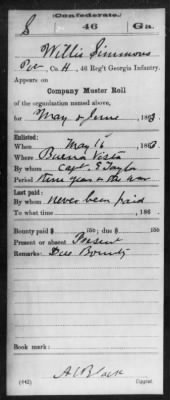 Confederate.
S 46 Ga.
Willis Simmons
Pvt, Co. H, 46 Reg't Georgia Infantry.
Appears on
Company Muster Roll
of the organization named above,
for May & June, 1863.
Enlisted:
When May 16, 1863.
Where Buena Vista
By whom Capt. Taylor
Period three years or the war
Last paid:
By whom never been paid
To what time , 186 .
Bounty paid $ 100; due $ 100
Present or absent Present
Remarks: Due Bounty
Book mark:
(642)
Copyist.